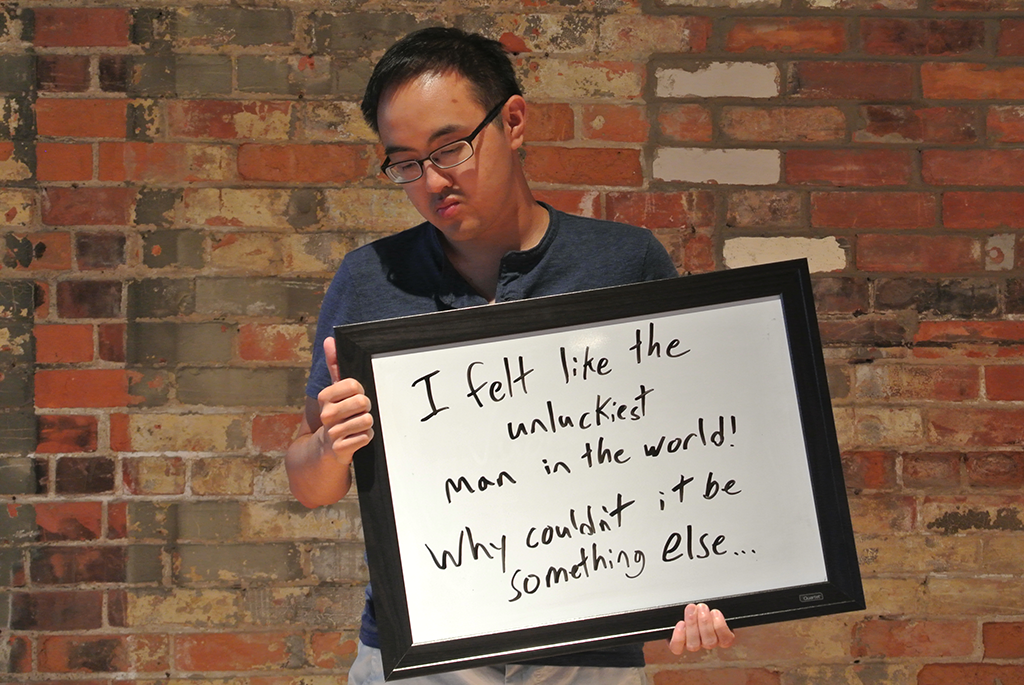 I felt like the
unluckiest
man in the world!
Why couldn't it be
something else...
Quartet